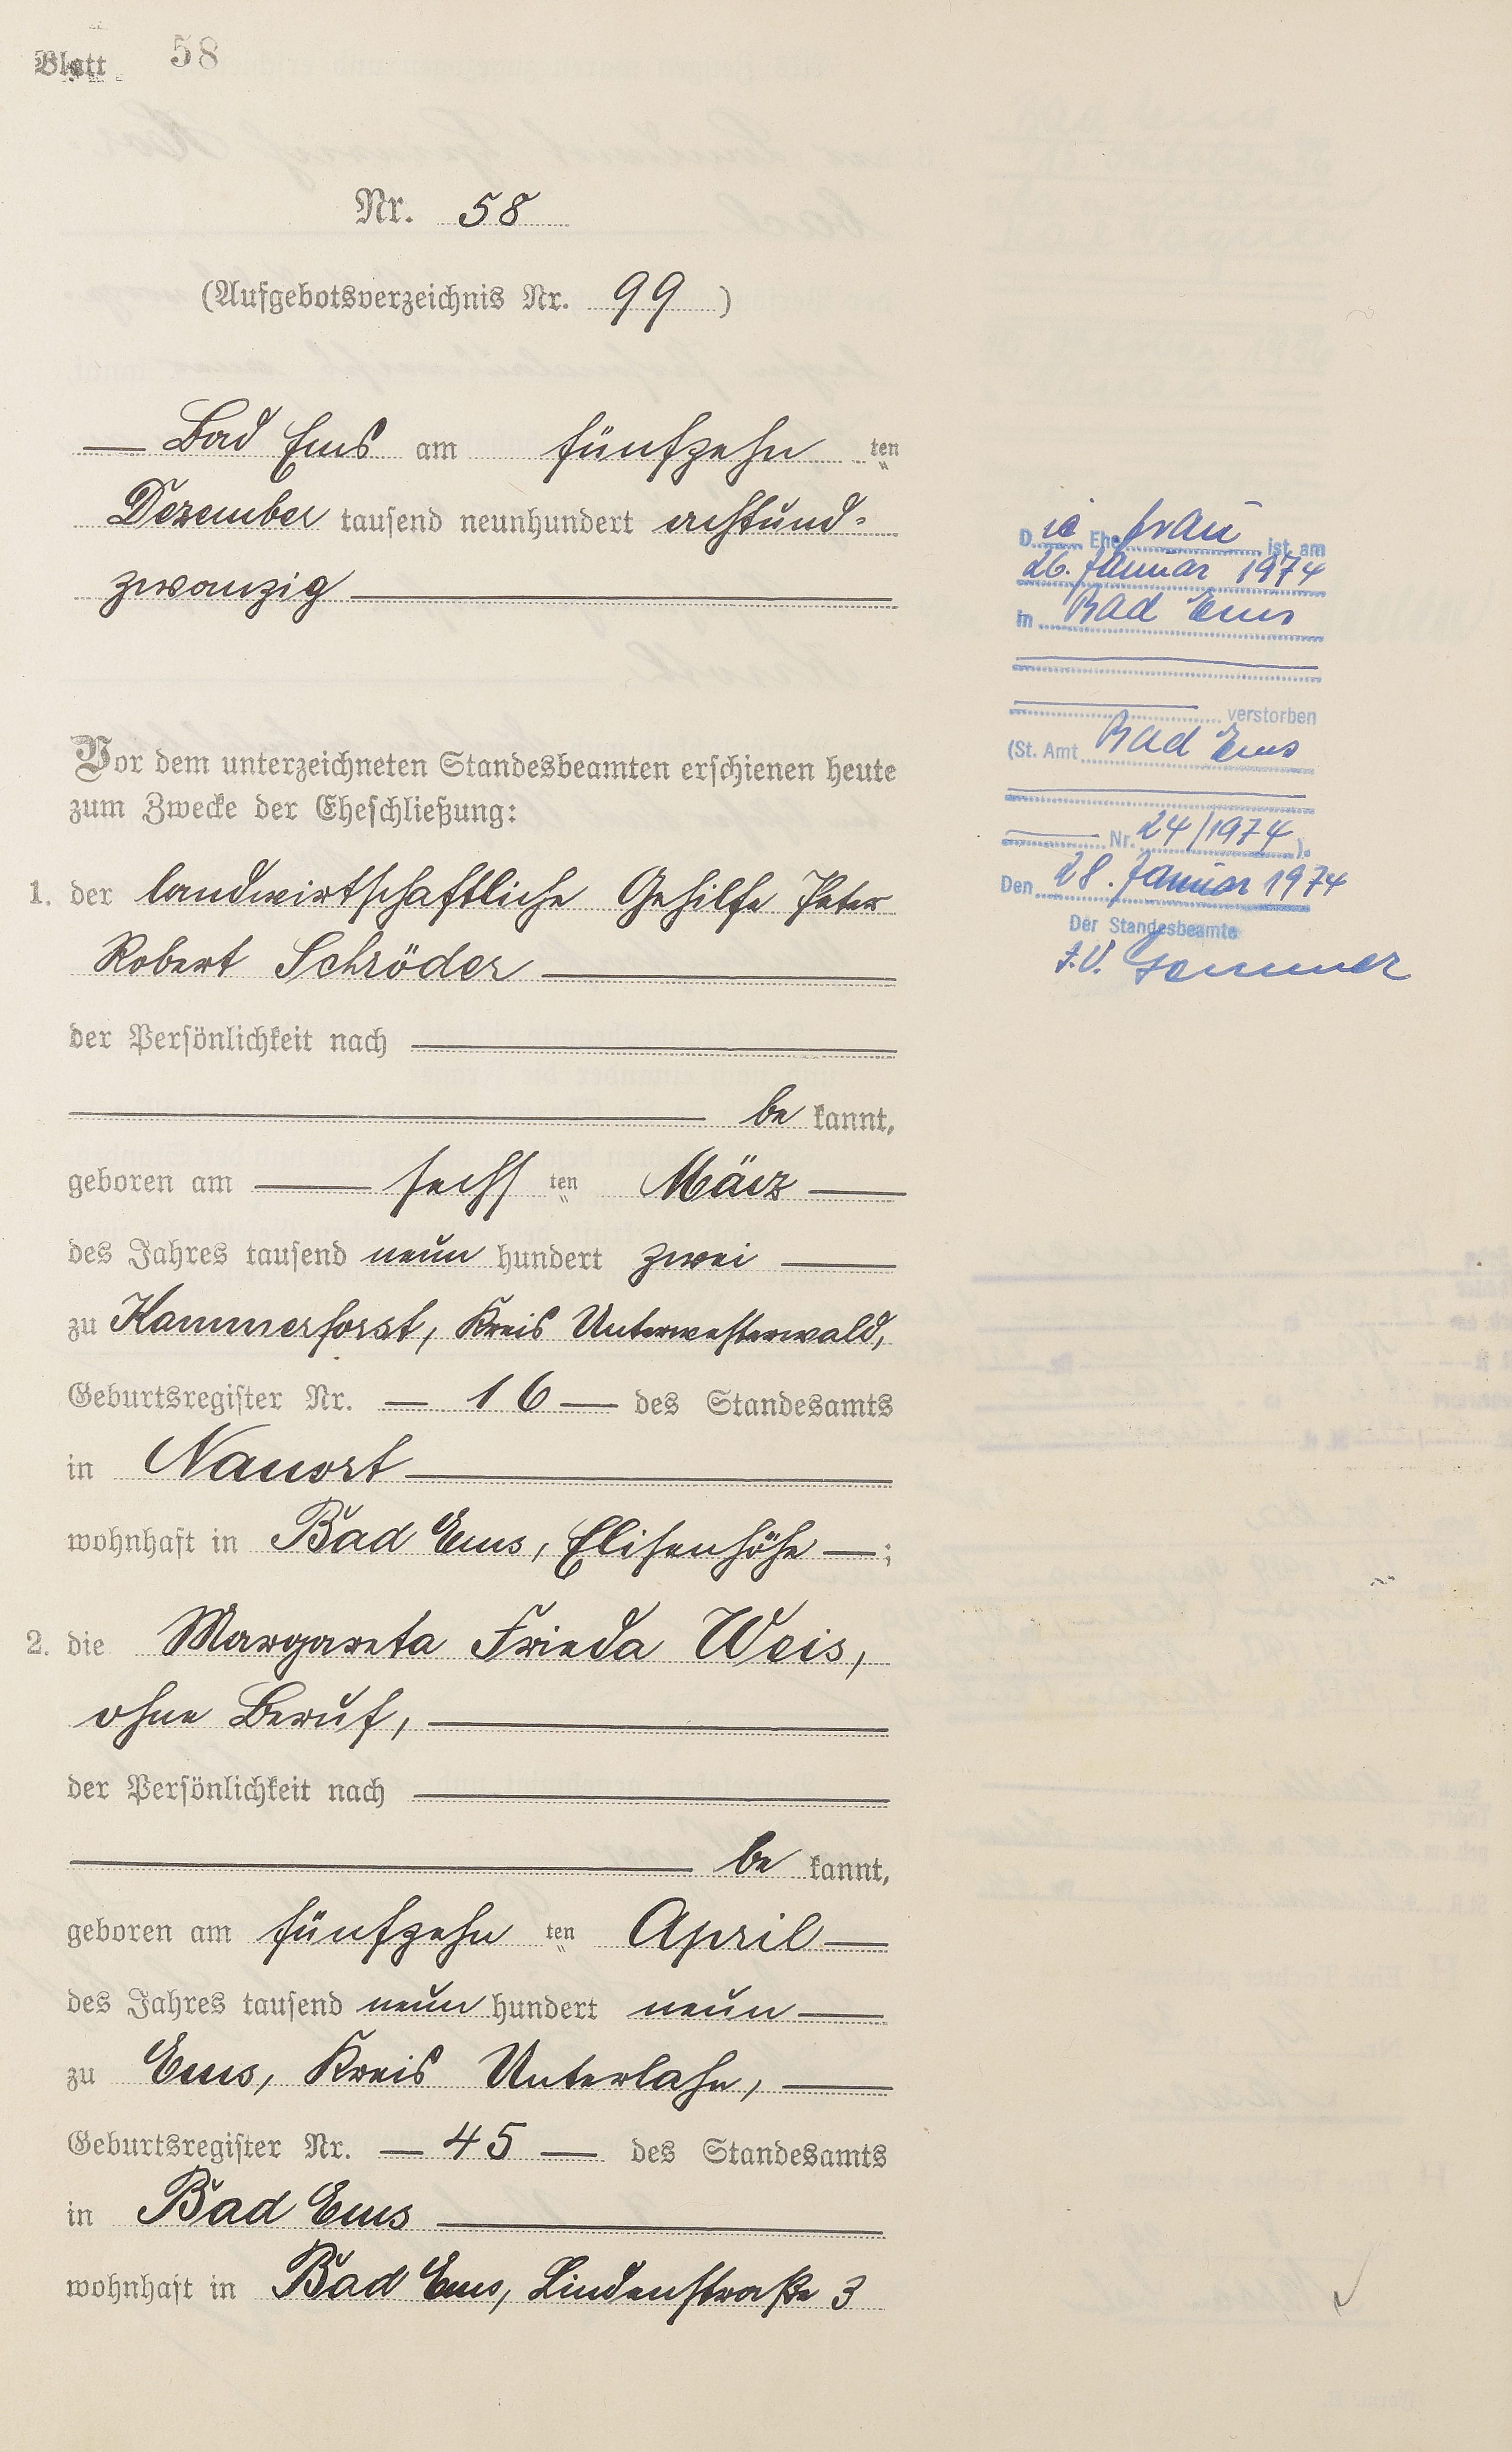 Blatt 58
Nr. 58
(Aufgebotsverzeichnis Nr. 99)
— Bad Ems am fünfzehn ten
Dezember tausend neunhundert achtund-
zwanzig —
Vor dem unterzeichneten Standesbeamten erschienen heute
zum Zwecke der Eheschließung:
1. der landwirtschaftliche Gehilfe Peter
Robert Schröder —
der Persönlichkeit nach —
— be kannt,
geboren am — sechs ten März —
des Jahres tausend neun hundert zwei —
zu Kammerforst, Kreis Unterwesterwald,
Geburtsregister Nr. — 16 — des Standesamts
in Nauort —
wohnhaft in Bad Ems, Elisenhöhe —;
2. die Margareta Frieda Weis,
ohne Beruf, —
der Persönlichkeit nach —
— be kannt,
geboren am fünfzehn ten April —
des Jahres tausend neun hundert neun —
zu Ems, Kreis Unterlahn, —
Geburtsregister Nr. — 45 — des Standesamts
in Bad Ems —
wohnhaft in Bad Ems, Lindenstraße 3
D ie Ehe frau ist am
26. Januar 1974
in Bad Ems
— verstorben
(St. Amt Bad Ems
— Nr. 24/1974).
Den 28. Januar 1974
Der Standesbeamte
I.V. Sommer